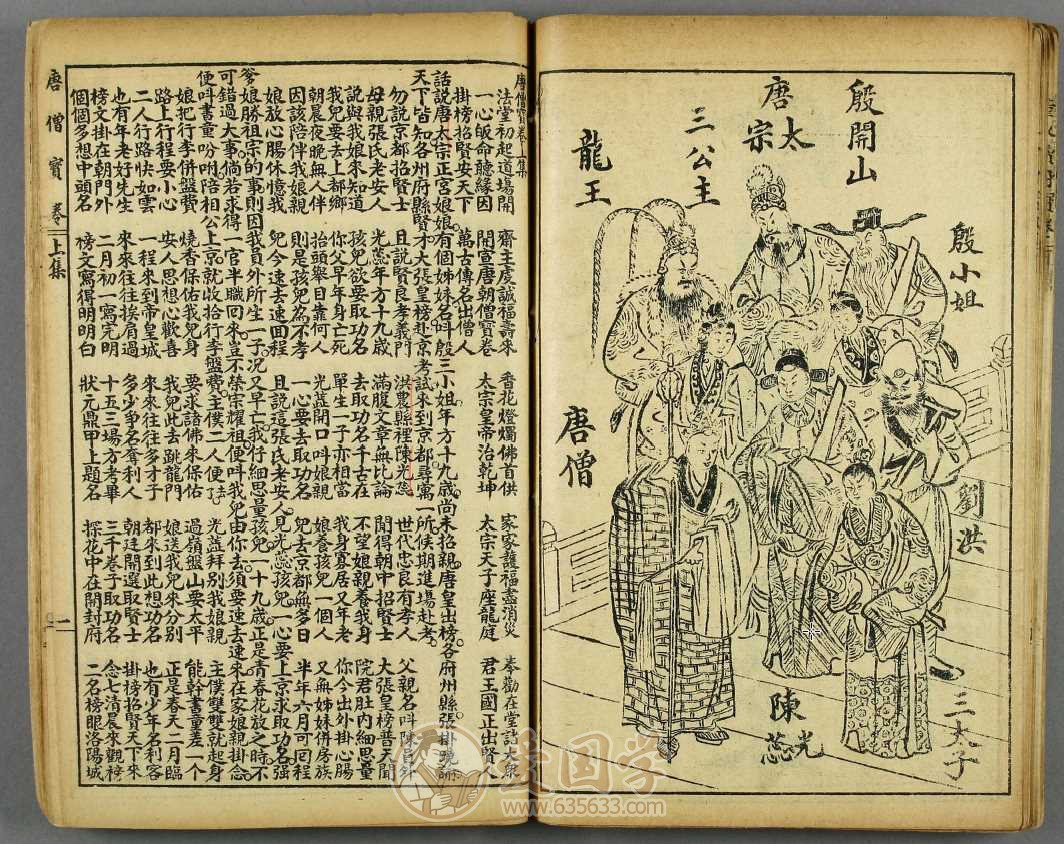 殷開山
唐太宗
三公主
龍王
殷小姐
唐僧
劉洪
陳光蕊
三太子
唐僧寶卷上集
法堂初起道場開 齋主虔誠福壽來 香花燈燭佛首供 家家護福盡消災 奉勸在堂諸大衆
一心皈命聽緣因 開宣唐朝僧寶卷 太宗皇帝治乾坤 太宗天子座龍庭 君王國正出賢人
掛榜招賢安天下 萬古傳名出僧人
話說唐太宗正宮娘娘有個姊妹名叫殷三小姐年方十九歲尚未招親唐皇出榜各府州縣張掛曉諭
天下皆知各州府縣賢才大張皇榜赴京考試來到京都尋寓一所候期進場赴考
勿說京都招賢士 且說賢良孝義門 洪農縣裡陳光蕊 世代忠良有孝人 父親名叫陳百外
母親張氏老安人 光蕊年方十九歲 滿腹文章無比論 聞得朝中招賢士 大張皇榜普天聞
說與我娘來知道 孩兒欲要取功名 去取功名千古在 不望媲親養我身 院君肚內細思量
我兒要去上都鄉 你父早年身亡死 單生一子亦相當 我身寡居又年老 你今出外掛心腸
朝晨夜晚無人伴 抬頭舉目靠何人 光蕊開口叫娘親 娘養孩兒一個人 又無姊妹併房族
因該陪伴我娘親 則是孩兒為不孝 一心要去取功名 兒去京都無多日 半年六月可回程
娘放心腸休憶我 兒今速去速回程 且說這張氏老安人見光蕊孩兒一心要上京求取功名强
爹娘勝祖宗的事則因我員外所生一子況又早亡我仔細思量孩兒一十九歲正是青春花放之時不
可錯過大事倘若求得一官半職回來豈不榮宗耀祖便叫我兒由你去須要速去速來在家娘親掛念
便叫書童吩咐陪相公上京就收拾行李盤費主僕二人便走 光蕊拜別我娘親 主僕雙雙就起身
娘把行李併盤費 燒香保佑我兒身 要求諸佛來保佑 過嶺盤山要太平 能幹書童差一個
路上行程要小心 安人思想心歡喜 我兒此去跳龍門 娘送我兒來分別 正是春天二月臨
二人行路快如雲 一程來到帝皇城 來來往往多才子 都來到此想功名 也有少年名利客
也有年老好先生 來來往往挨肩過 多少爭名奪利人 朝廷開選取賢士 掛榜招賢天下來
榜文掛在朝門外 二月初一寫完明 十五三場方考畢 三千卷子取功名 念七清晨來觀榜
個個多想中頭名 榜文寫得明明白 狀元鼎甲上題名 探花中在開封府 二名榜眼洛陽城
唐僧寶卷 上集 一
愛国学
www.635633.com